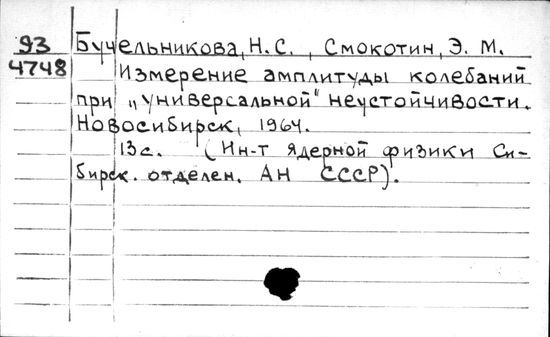 93 Бучельникова, Н. С., Смокотин, Э. М.
4748 Измерение амплитуды колебаний
при „универсальной“ неустойчивости.
Новосибирск, 1964.
13 с. (Ин-т ядерной физики Си-
бирск. отделен. АН СССР).